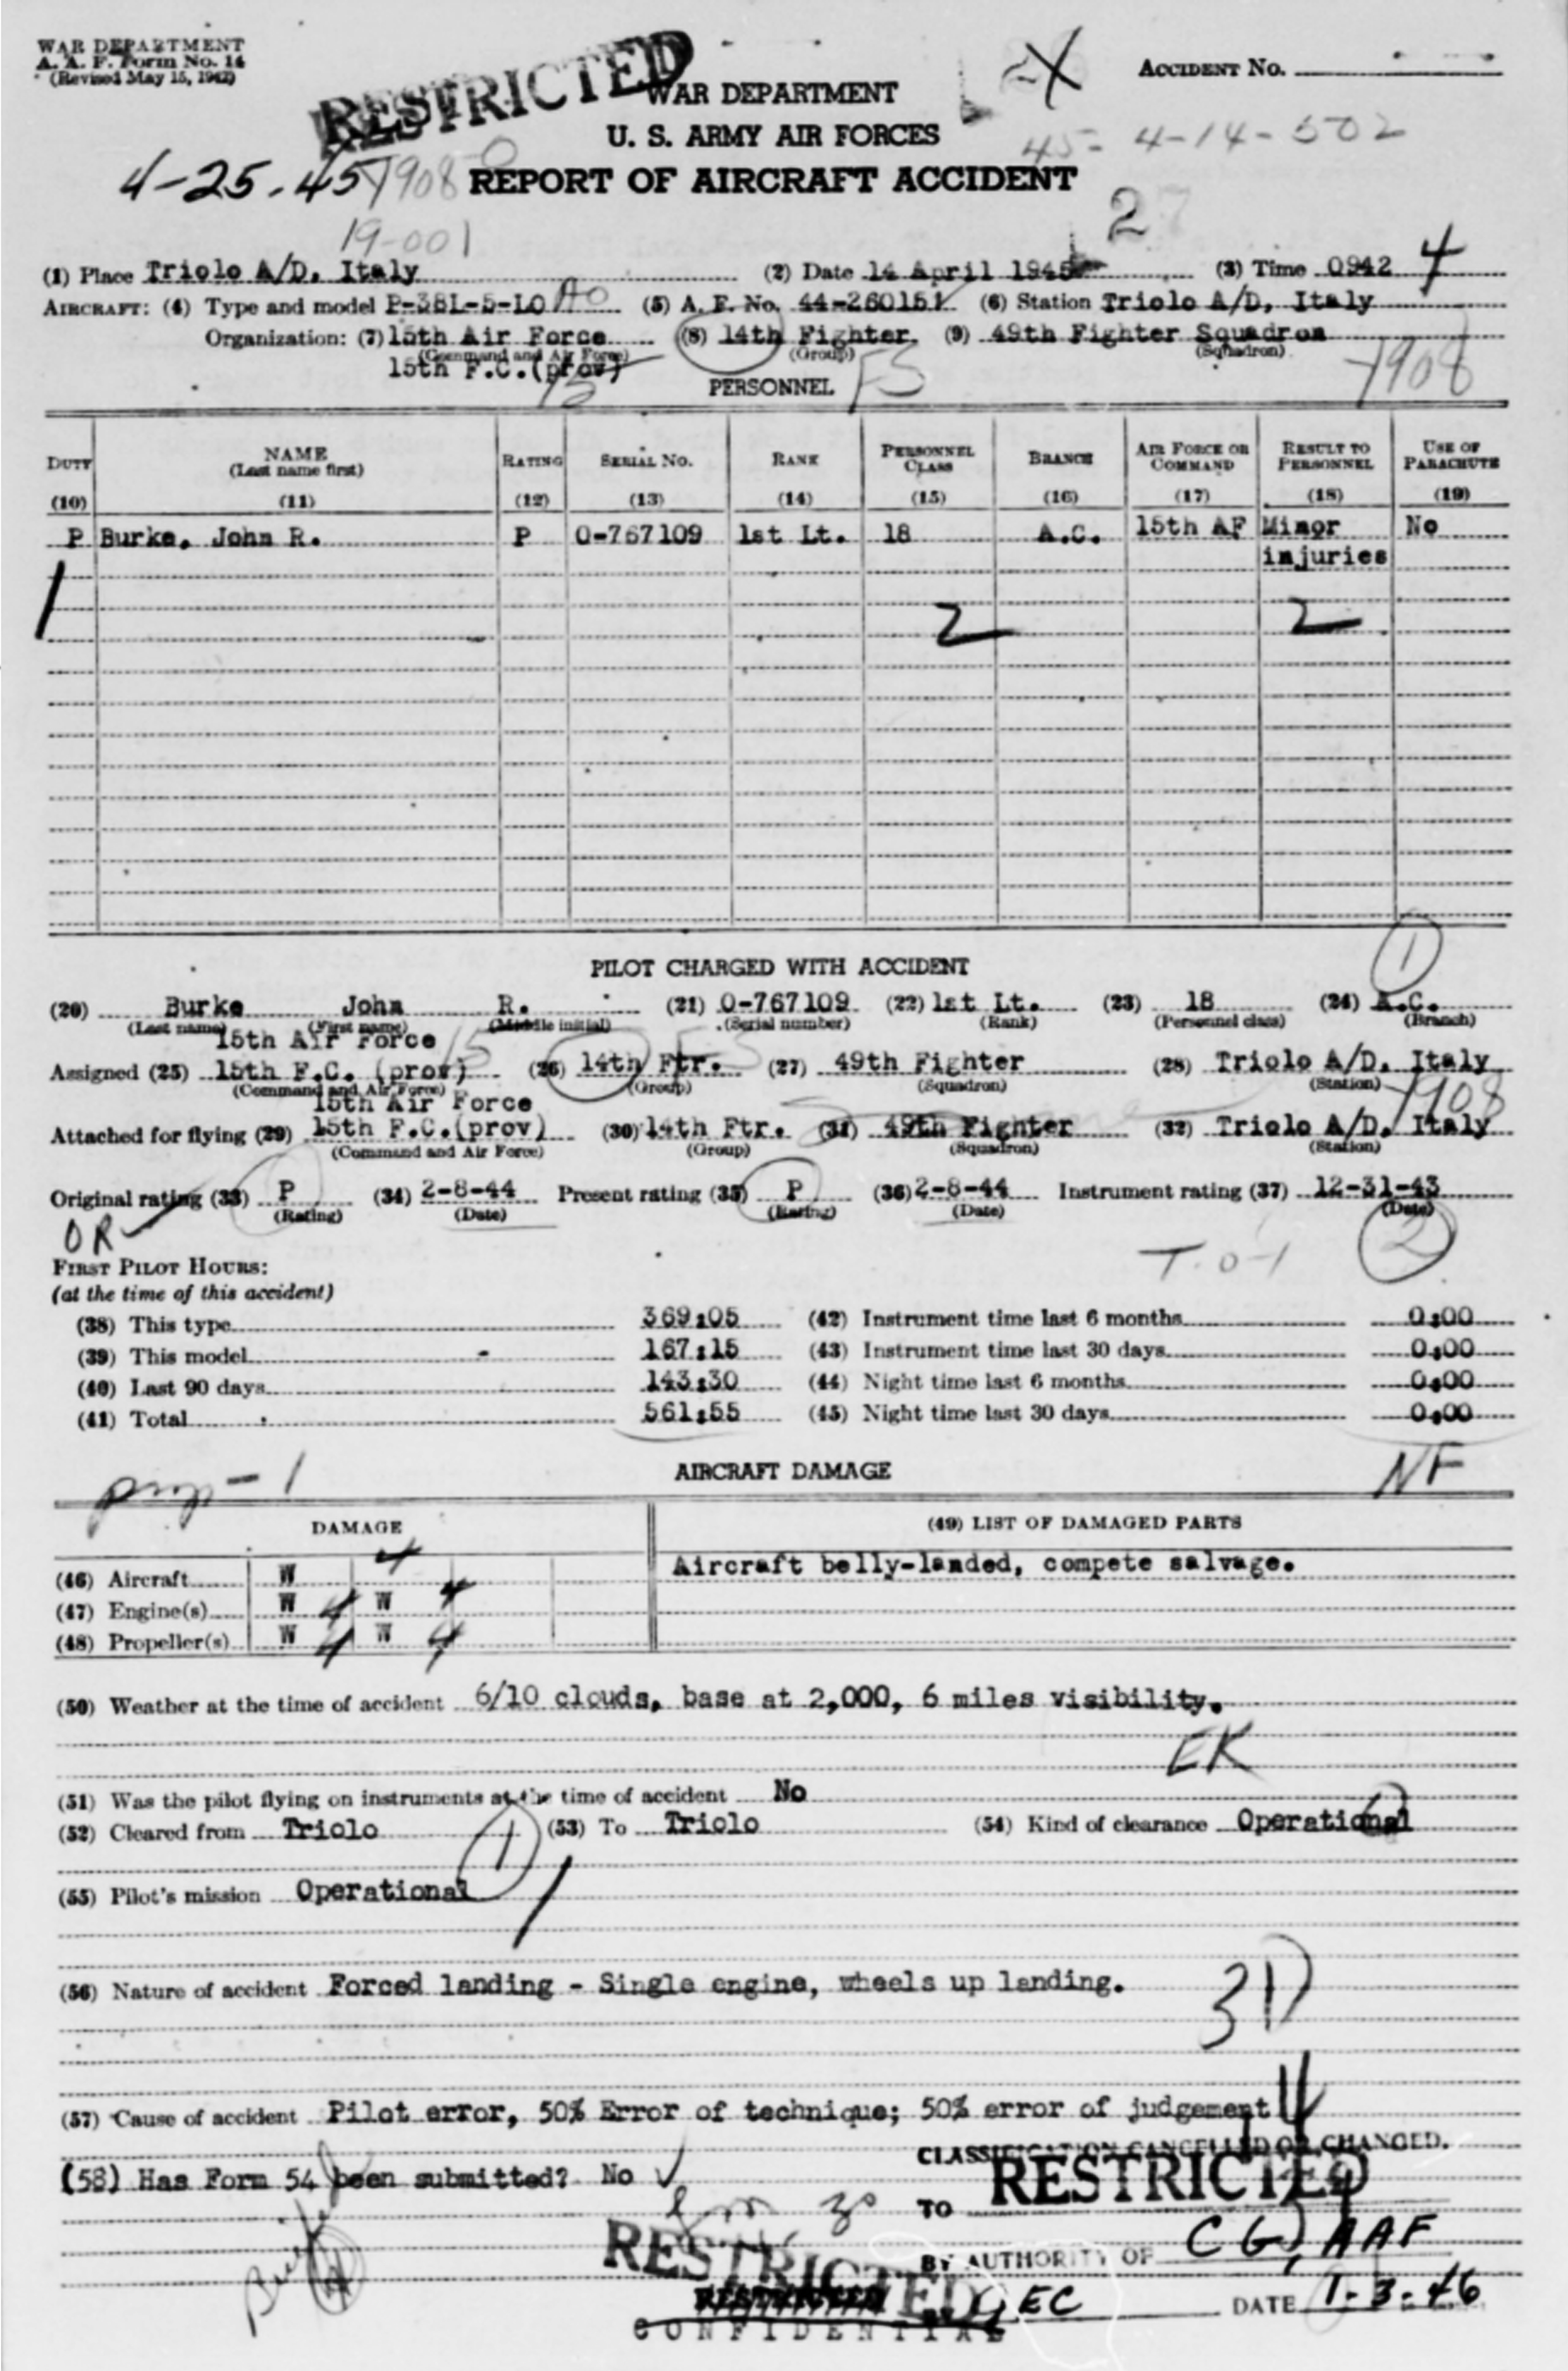 WAR DEPARTMENT
A. A. F. Form No. 14
(Revised May 15, 1942)
RESTRICTED
WAR DEPARTMENT
U. S. ARMY AIR FORCES
REPORT OF AIRCRAFT ACCIDENT
ACCIDENT NO.
45-4-14-502
4-25-45
19-001
2
(1) Place Triolo A/D, Italy (2) Date 14 April 1945 (3) Time 0942 4
AIRCRAFT: (4) Type and model P-38L-5-LO (5) A. F. No. 44-260151 (6) Station Triolo A/D, Italy
Organization: (7) 15th Air Force (8) 14th Fighter (9) 49th Fighter Squadron
(Command and Air Force) (Group) (Squadron)
15th F.C.(prov)
15 FS 1908
PERSONNEL
DUTY NAME (Last name first) RATING SERIAL NO. RANK PERSONNEL CLASS BRANCH AIR FORCE OR COMMAND RESULT TO PERSONNEL USE OF PARACHUTE
(10) (11) (12) (13) (14) (15) (16) (17) (18) (19)
P Burke, John R. P O-767109 1st Lt. 18 A.C. 15th AF Minor injuries No
1 2 2
PILOT CHARGED WITH ACCIDENT
1
(20) Burke John R. (21) O-767109 (22) 1st Lt. (23) 18 (24) A.C.
(Last name) (First name) (Middle initial) (Serial number) (Rank) (Personnel class) (Branch)
15th Air Force
Assigned (25) 15th F.C. (prov) (26) 14th Ftr. (27) 49th Fighter (28) Triolo A/D, Italy
(Command and Air Force) (Group) (Squadron) (Station)
15th Air Force
1908
Attached for flying (29) 15th F.C.(prov) (30) 14th Ftr. (31) 49th Fighter (32) Triolo A/D, Italy
(Command and Air Force) (Group) (Squadron) (Station)
Original rating (33) P (34) 2-8-44 Present rating (35) P (36) 2-8-44 Instrument rating (37) 12-31-43
(Rating) (Date) (Rating) (Date) (Date)
OR
T.O-1 2
FIRST PILOT HOURS:
(at the time of this accident)
(38) This type 369:05 (42) Instrument time last 6 months 0:00
(39) This model 167:15 (43) Instrument time last 30 days 0:00
(40) Last 90 days 143:30 (44) Night time last 6 months 0:00
(41) Total 561:55 (45) Night time last 30 days 0:00
prop-1
AIRCRAFT DAMAGE
NF
DAMAGE (49) LIST OF DAMAGED PARTS
(46) Aircraft W 4 Aircraft belly-landed, compete salvage.
(47) Engine(s) W 4 W 4
(48) Propeller(s) W 4 W 4
(50) Weather at the time of accident 6/10 clouds, base at 2,000, 6 miles visibility.
(51) Was the pilot flying on instruments at the time of accident No
(52) Cleared from Triolo (53) To Triolo (54) Kind of clearance Operational
1
(55) Pilot's mission Operational
(56) Nature of accident Forced landing - Single engine, wheels up landing.
(57) Cause of accident Pilot error, 50% Error of technique; 50% error of judgement
CLASSIFICATION CANCELLED OR CHANGED.
(58) Has Form 54 been submitted? No
TO RESTRICTED
RESTRICTED
BY AUTHORITY OF CG, AAF
RESTRICTED
EC DATE 1-3-46
CONFIDENTIAL